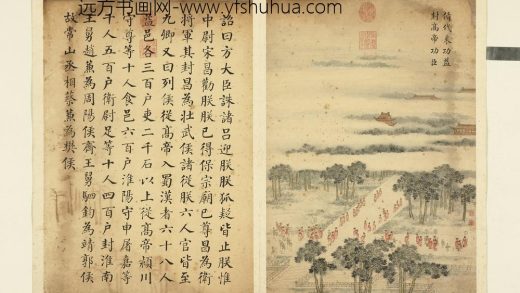 远方书画网-www.yfshuhua.com
脩代來功益
封高帝功臣
詔曰方大臣誅諸呂迎朕朕狐疑皆止朕惟
中尉宋昌勸朕朕已得保宗廟已尊昌為衛
將軍其封昌為壯武侯諸從朕六人官皆至
九卿又曰列侯從高帝入蜀漢者六十八人
益邑各三百户吏二千石以上從高帝潁川
守尊等十人食邑六百户淮陽守申屠嘉等
十人五百户衛尉足等十人四百户封淮南
王舅趙蒹為周陽侯齊王舅駟鈞為靖郭侯
故常山丞相蔡蒹為樊侯